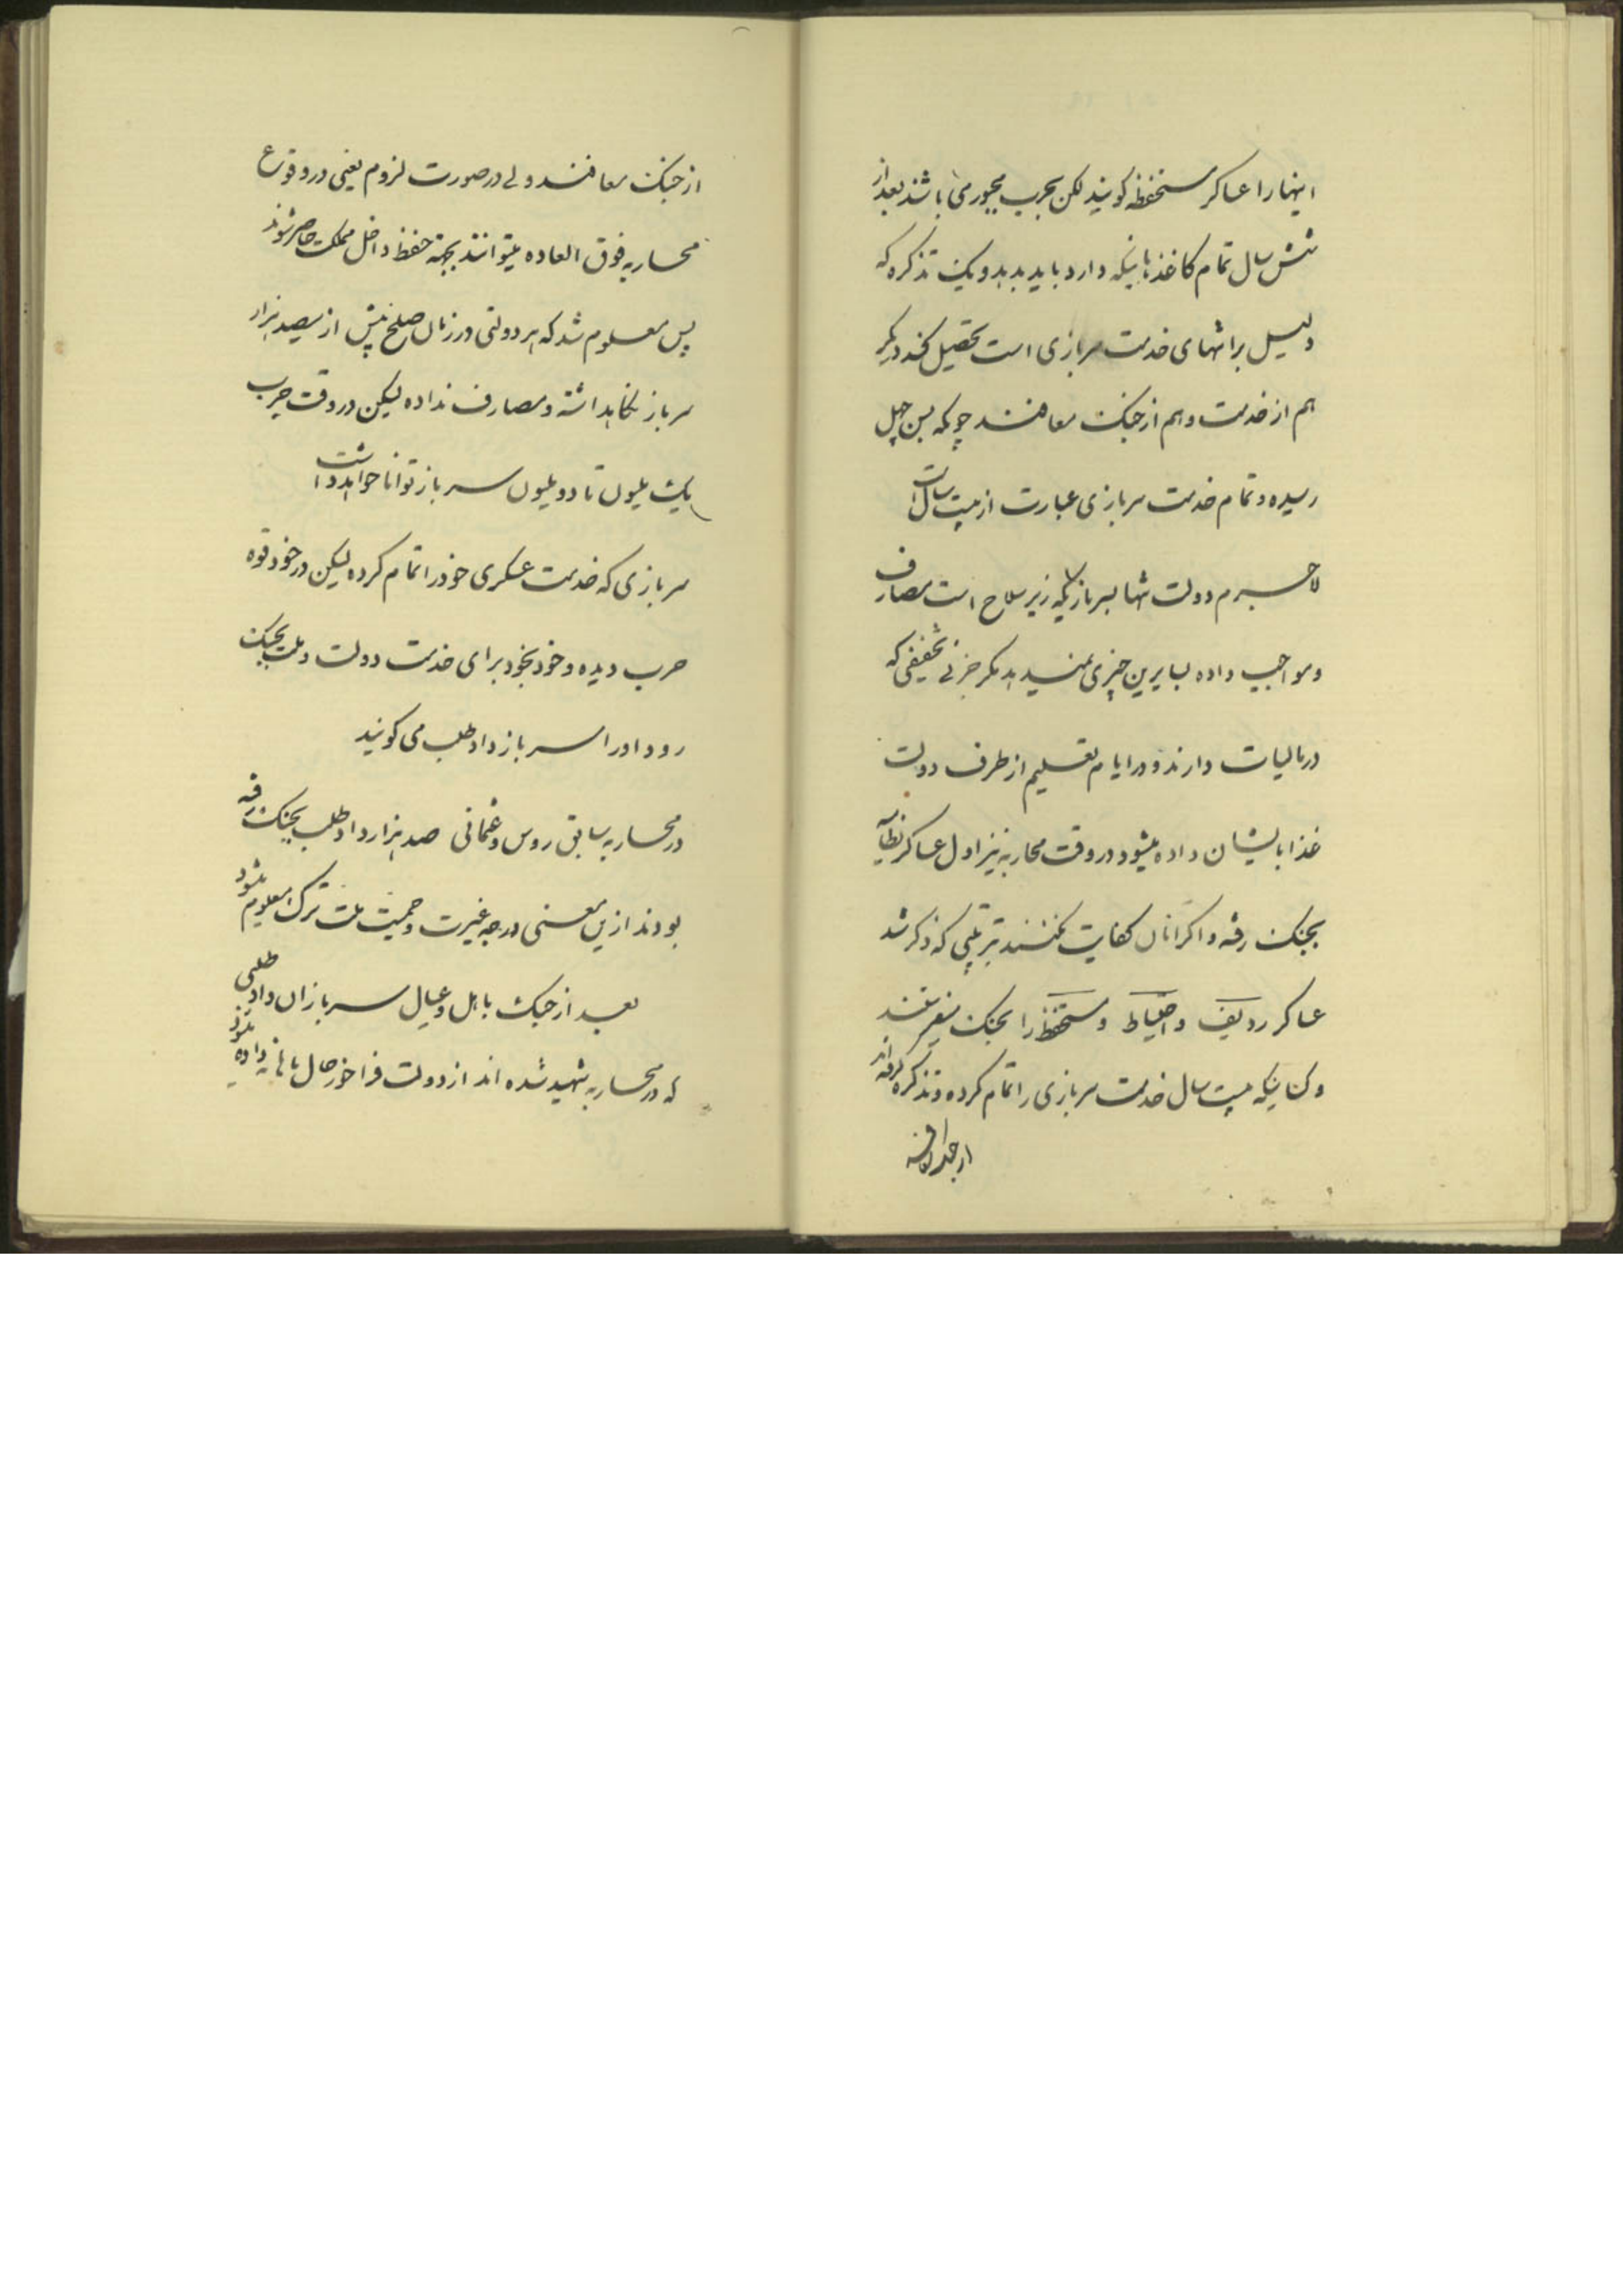 اینها را عساکر مستحفظه کویند لکن بحرب مجبور می باشند بعد از
شش سال تمام کاغذهائیکه دارد باید بدهد و یک تذکره که
دلیل بر انتهای خدمت سربازی است تحصیل کند دیگر
هم از خدمت و هم از جنک معافند چونکه بسن چهل
رسیده و تمام خدمت سربازی عبارت از بیست سال است
لاجرم دولت تنها بسربازیکه زیر سلاح است مصارف
و مواجب داده بسایرین چیزی نمیدهد مکر جزئی تخفیفی که
در مالیات دارند و در ایام تعلیم از طرف دولت
غذا بایشان داده میشود در وقت محاربه نیز اول عساکر نظامیه
بجنک رفته و اکر آنان کفایت نکنند بترتیبی که ذکر شد
عساکر ردیف و احتیاط و مستحفظ را بجنک میفرستند
و کسانیکه بیست سال خدمت سربازی را تمام کرده و تذکره کرفته اند
از جنک معافند ولی در صورت لزوم یعنی در وقوع
محاربه فوق العاده میتوانند بجهة حفظ داخل مملکت حاضر شوند
پس معلوم شد که هر دولتی در زمان صلح بیش از سیصد هزار
سرباز نکاهداشته و مصارف نداده لیکن در وقت حرب
یک ملیون تا دو ملیون سرباز توانا خواهد داشت
سربازی که خدمت عسکری خود را تمام کرده لیکن در خود قوه
حرب دیده و خود بخود برای خدمت دولت و ملت بجنک
رود او را سرباز داوطلب می کویند
در محاربه سابق روس و عثمانی صد هزار داوطلب بجنک رفته
بودند ازین معنی درجه غیرت و حمیت ملت ترک معلوم میشود
بعد از جنک باهل و عیال سربازان داوطلبی
که در محاربه شهید شده اند از دولت فراخور حال ماهانه داده میشود